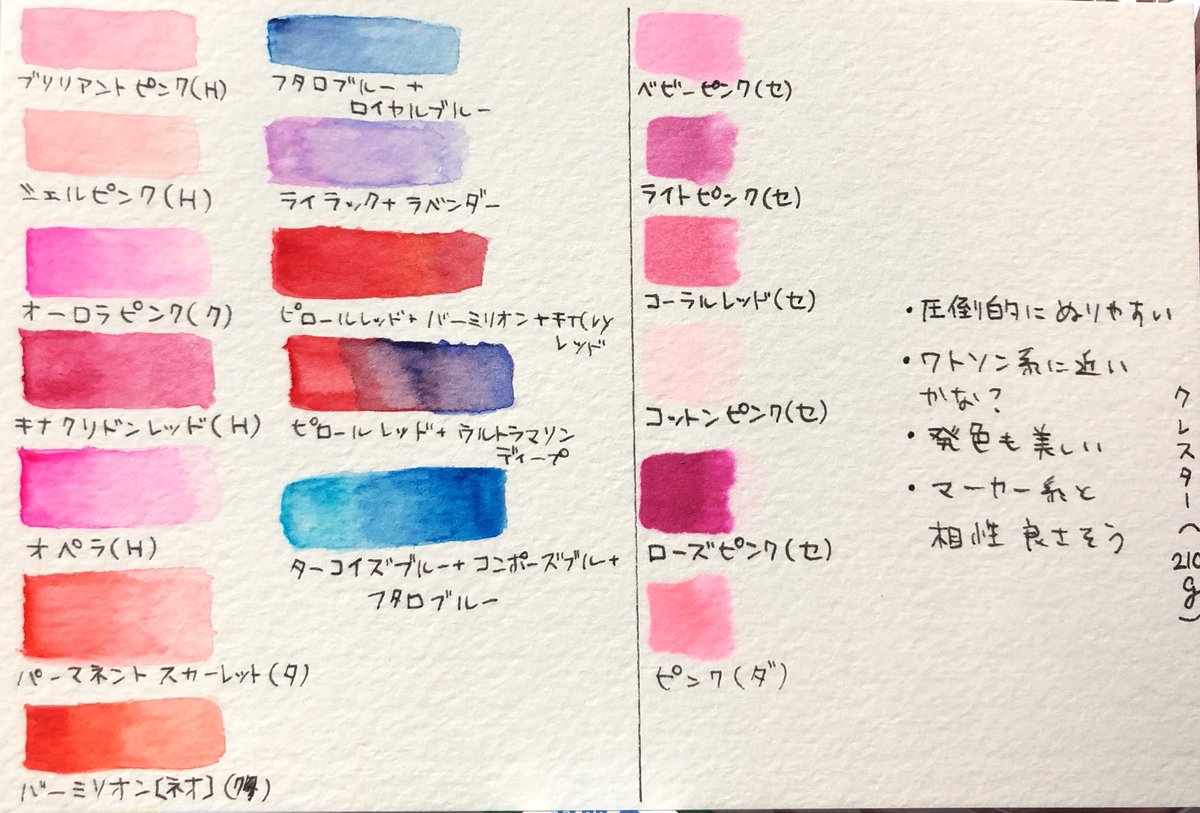 ブリリアントピンク(H)
ジェルピンク(H)
オーロラピンク(ク)
キナクリドンレッド(H)
オペラ(H)
パーマネントスカーレット(タ)
バーミリオン[ネオ]
フタロブルー+
ロイヤルブルー
ライラック+ラベンダー
ピロールレッド+バーミリオン+
レッド
ピロールレッド+ウルトラマリン
ディープ
ターコイズブルー+コンポーズブルー+
フタロブルー
ベビーピンク(セ)
ライトピンク(セ)
コーラルレッド(セ)
コットンピンク(セ)
ローズピンク(セ)
ピンク(ダ)
・圧倒的にぬりやすい
・ワトソン系に近い
かな?
・発色も美しい
・マーカー系と
相性良さそう
クレスター(210g)